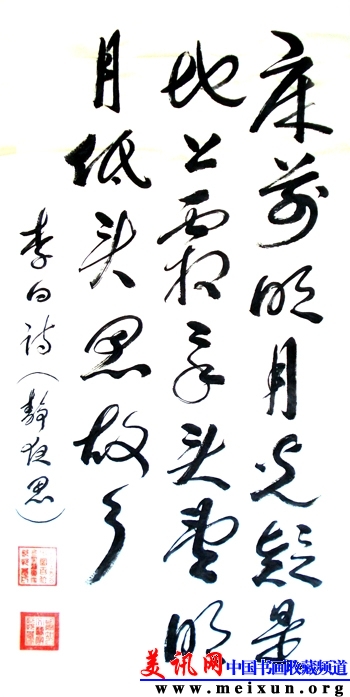 床前明月光疑是
地上霜举头望明
月低头思故乡
李白诗(静夜思)
美讯网 中国书画收藏频道
www.meixun.org